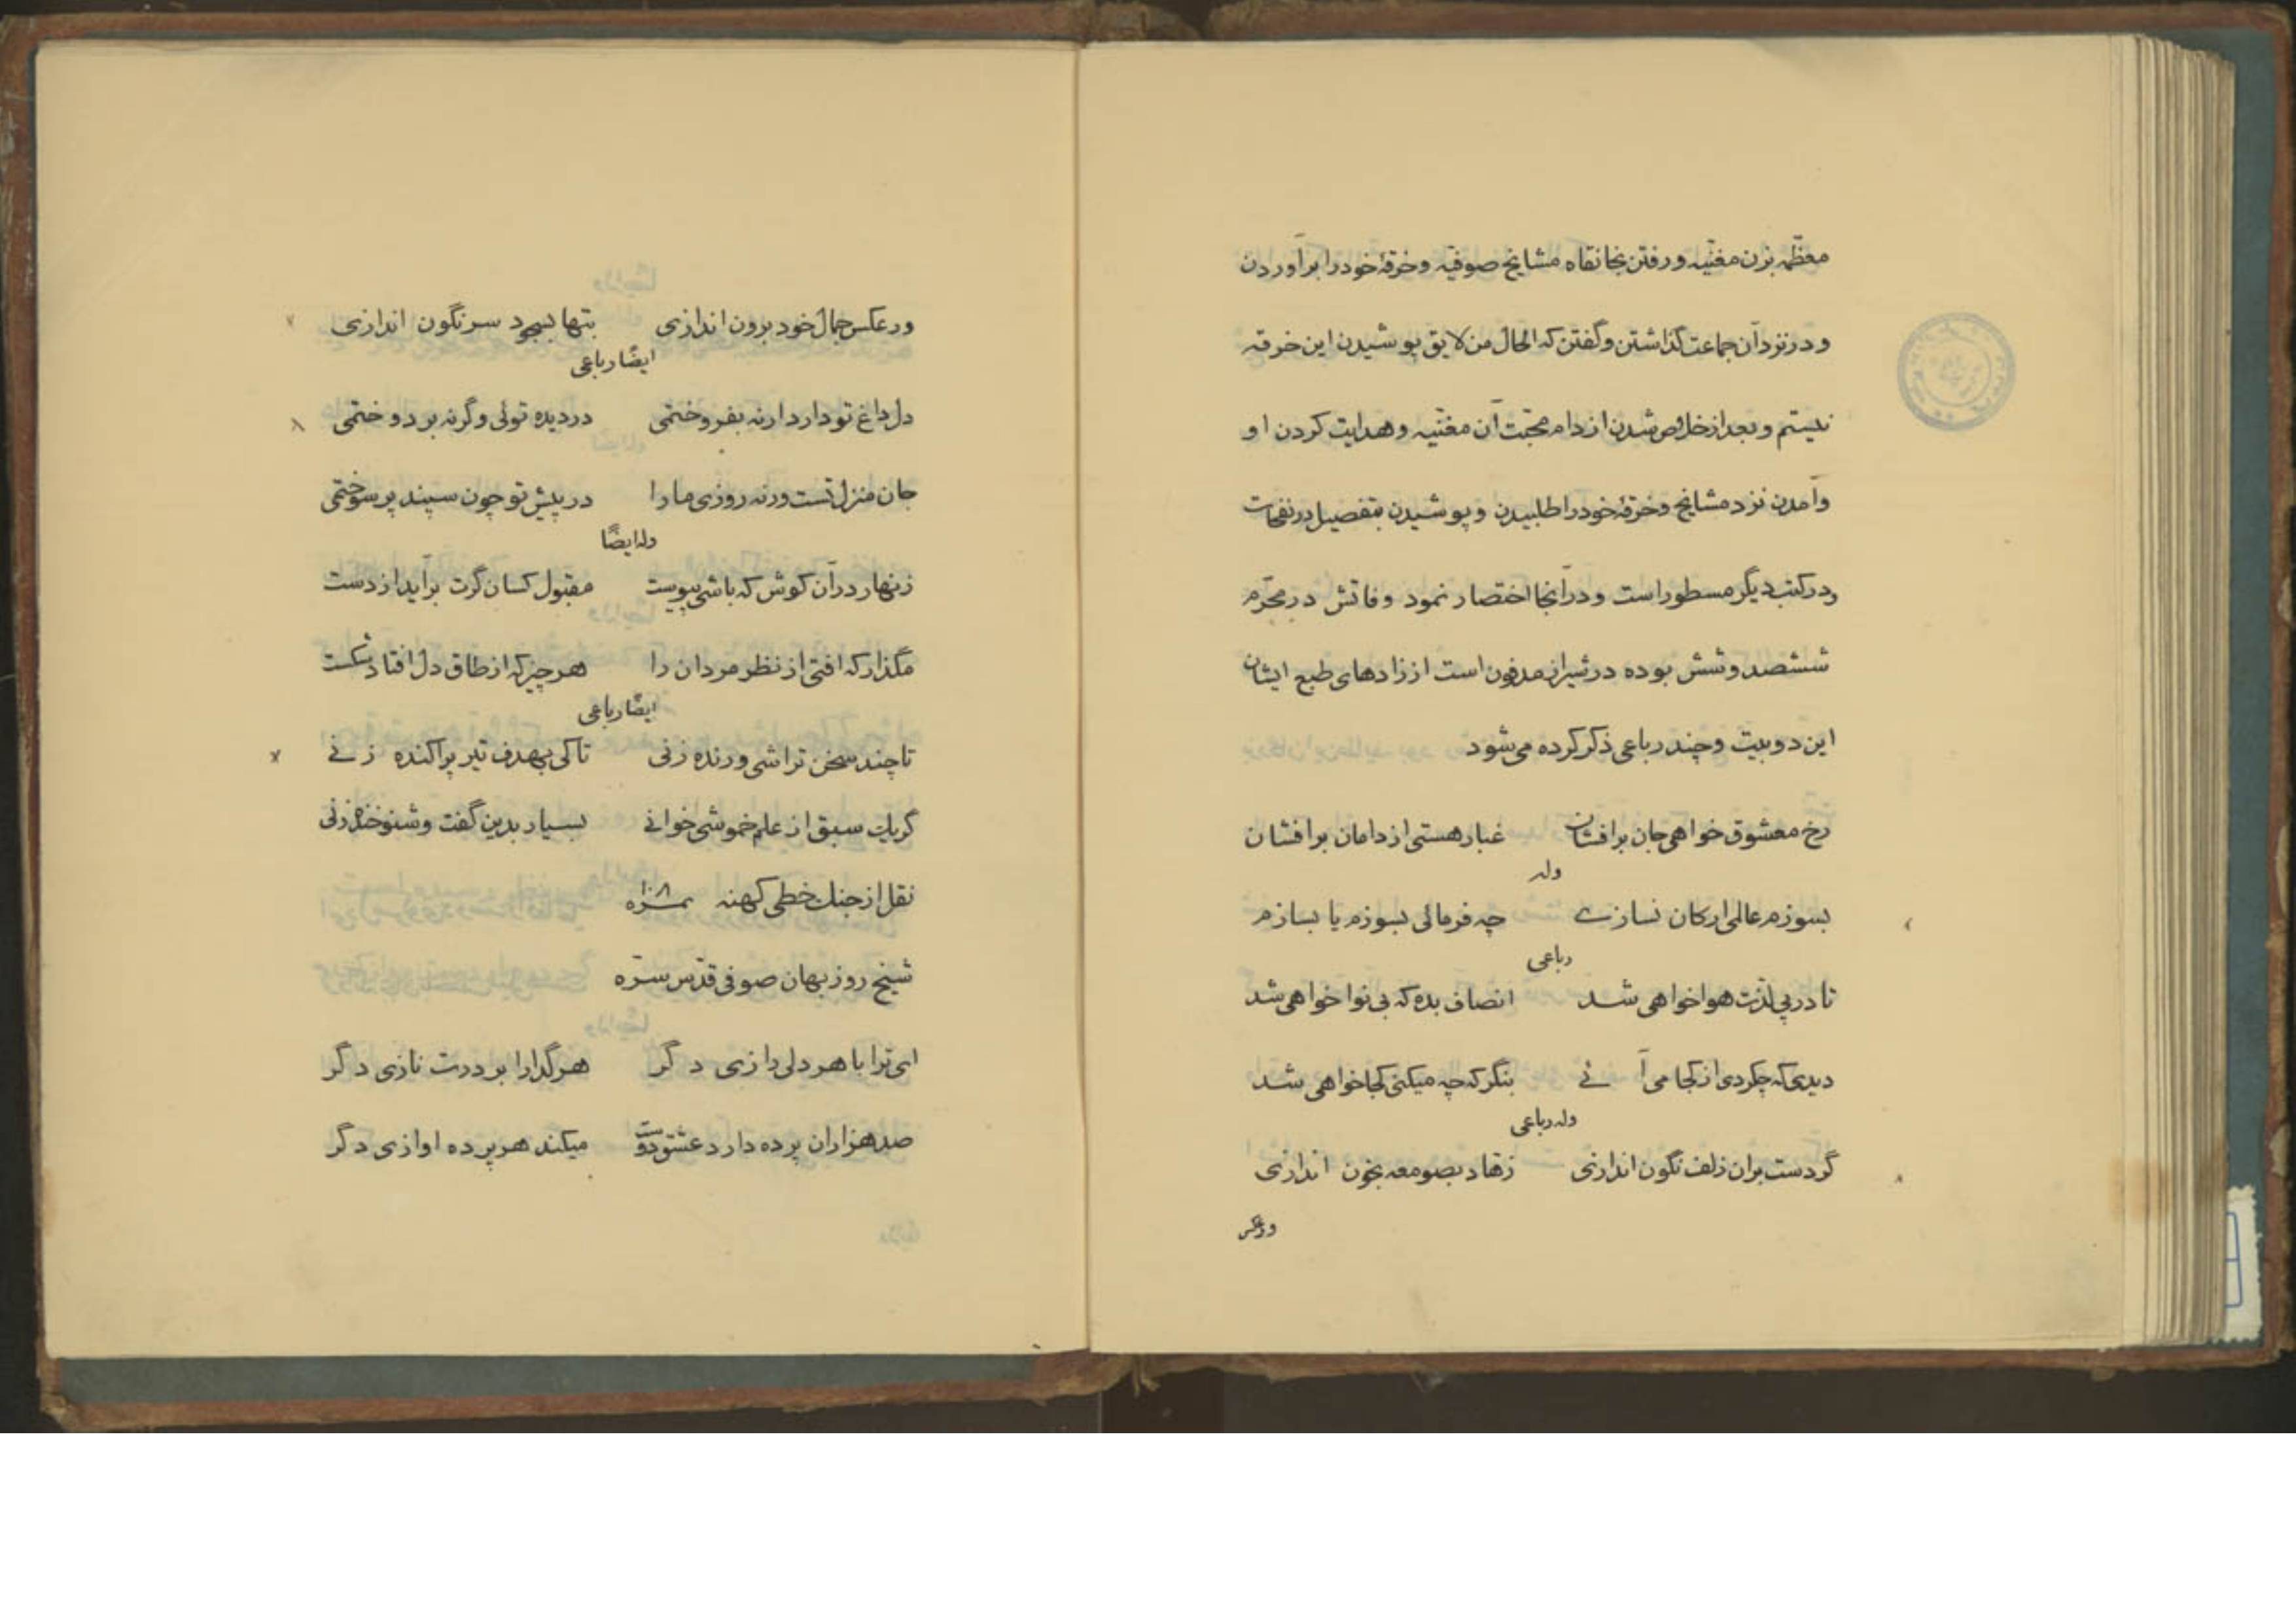 معظمه بزن مغنیه و رفتن بخانقاه مشایخ صوفیه و خرقهٔ خود را برآوردن
و در نزد آن جماعت گذاشتن و گفتن که الحال من لایق پوشیدن این خرقه
نیستم و بعد از خلاص شدن از دام محبّت آن مغنّیه و هدایت کردن او
وآمدن نزد مشایخ و خرقهٔ خود را طلبیدن و پوشیدن بتفصیل در نفحات
و در کتب دیگر مسطور است و در آنجا اختصار نمود وفاتش در محرّم
ششصد و شش بوده در شیراز مدفون است از زادهای طبع ایشان
این دو بیت و چند رباعی ذکر کرده می شود
رخ معشوق خواهی جان برافشان غبار هستی از دامان برافشان
وله
بسوزم عالمی ار کان نسازے چه فرمائی بسوزم یا بسازم
رباعی
تا در پی لذّت هوا خواهی شد انصاف بده که بی نوا خواهی شد
دیدی که چکردی از کجا می آئے بنگر که چه میکنی کجا خواهی شد
وله رباعی
گر دست بران زلف نگون اندازی زهاد بصومعه بخون اندازی
ور عکس
ور عکس جمال خود برون اندازی بتها بسجود سرنگون اندازی
ایضًا رباعی
دل داغ تو دارد ارنه بفروختمی در دیده توئی وگرنه بر دوختمی
جان منزل تست ورنه روزی ما را در پیش تو چون سپند پر سوختمی
وله ایضًا
زنهار در آن کوش که باشی پیوست مقبول کسان گرت برآید از دست
مگذار که افتی از نظر مردان را هر چیز که از طاق دل افتاد شکست
ایضًا رباعی
تا چند سخن تراشی و رنده زنی تا کی بهدف تیر پراکنده زنے
گر یک سبق از علم خموشی خوانے بسیار بدین گفت و شنو خنده زنی
نقل از جنک خطی کهنه
شیخ روزبهان صوفی قدّس سرّه
ای ترا با هر دلی رازی دگر هر گدا را بر درت نازی دگر
صد هزاران پرده دارد عشق دوست میکند هر پرده اوازی دگر